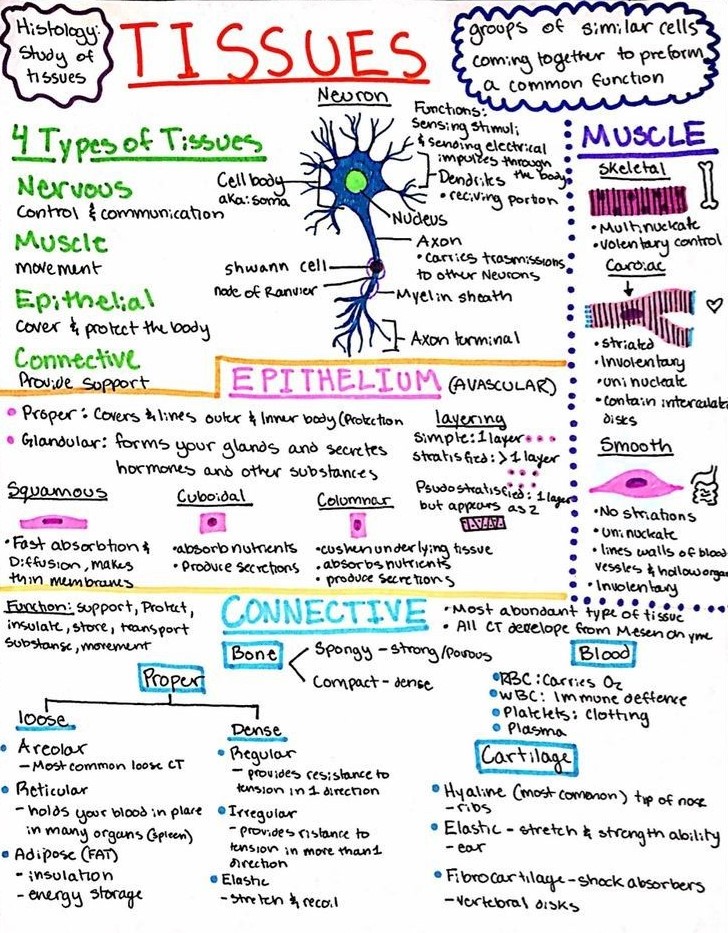 Histology:
Study of
tissues
TISSUES
groups of similar cells
coming together to preform
a common function
4 Types of Tissues
Nervous
Control & communication
Muscle
movement
Epithelial
Cover & protect the body
Connective
Provide support
Neuron
Functions:
sensing stimuli
& sending electrical
impulzes through
the body
Cell body
aka: soma
Dendrites
• reciving porton
Nucleus
Axon
• Carries trasmissions
to other Neurons
shwann cell
node of Ranvier
Myelin sheath
Axon terminal
MUSCLE
Skeletal
• Multinuckate
• volentary control
Cardiac
• striated
• Involentary
• uninucleate
• contain intercalate
disks
Smooth
• No striations
• uninuckate
• lines walls of blood
vessles & hollow organ
• Involentary
EPITHELIUM (AVASCULAR)
• Proper: Covers & lines outer & Inner body (Protection
• Glandular: forms your glands and secretes
hormones and other substances
layering
Simple: 1 layer
stratisfied: > 1 layer
Psudostratisfied: 1 layer
but appears as 2
Squamous
• Fast absorbtion &
Diffusion, makes
thin membranes
Cuboidal
• absorb nutrients
• Produce secretions
Columnar
• cushen underlying tissue
• absorbs nutrients
• produce secretions
Function: support, Protect,
insulate, store, transport
substanse, movement
CONNECTIVE
• Most abundant type of tissue
• All CT develope from Mesenchyme
Bone
Spongy - strong/porous
Compact - dense
Blood
• RBC: Carries O2
• WBC: Immune deffence
• Platelets: Clotting
• Plasma
Proper
loose
• Areolar
- Most common loose CT
• Reticular
- holds your blood in place
in many organs (spleen)
• Adipose (FAT)
- insulation
- energy storage
Dense
• Regular
- provides resistance to
tension in 1 direction
• Irregular
- provides ristance to
tension in more than 1
direction
• Elastic
- stretch & recoil
Cartilage
• Hyaline (most common) tip of nose
- ribs
• Elastic - stretch & strength ability
- ear
• Fibrocartilage - shock absorbers
- vertebral disks